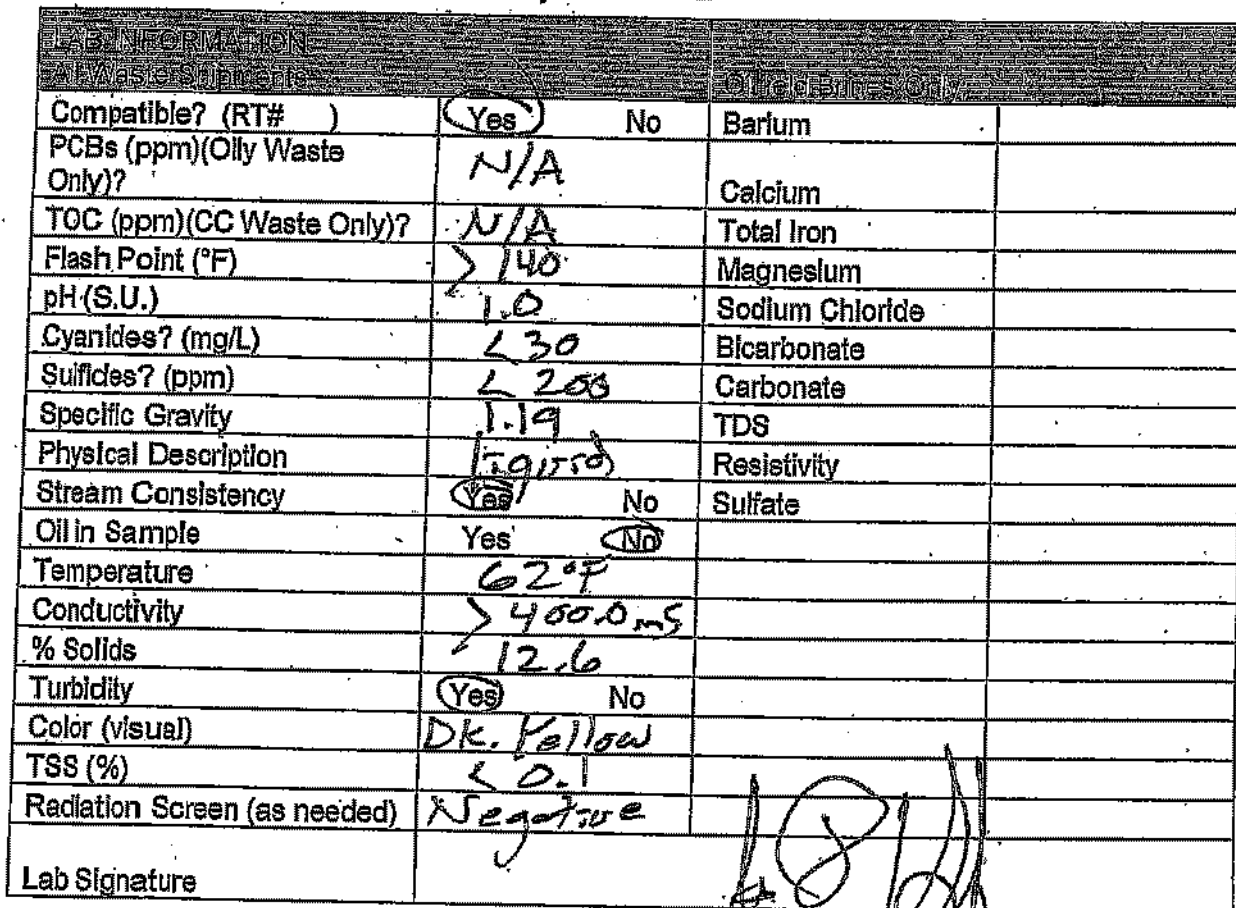 LAB INFORMATION
All Waste Shipments Oilfield Brines Only
Compatible? (RT# ) Yes No Barium
PCBs (ppm)(Oily Waste
Only)? N/A Calcium
TOC (ppm)(CC Waste Only)? N/A Total Iron
Flash Point (°F) > 140 Magnesium
pH (S.U.) 1.0 Sodium Chloride
Cyanides? (mg/L) <30 Bicarbonate
Sulfides? (ppm) < 200 Carbonate
Specific Gravity 1.19 TDS
Physical Description liquid Resistivity
Stream Consistency Yes No Sulfate
Oil in Sample Yes No
Temperature 62°F
Conductivity > 400.0 mS
% Solids 12.6
Turbidity Yes No
Color (visual) Dk. Yellow
TSS (%) < 0.1
Radiation Screen (as needed) Negative
Lab Signature